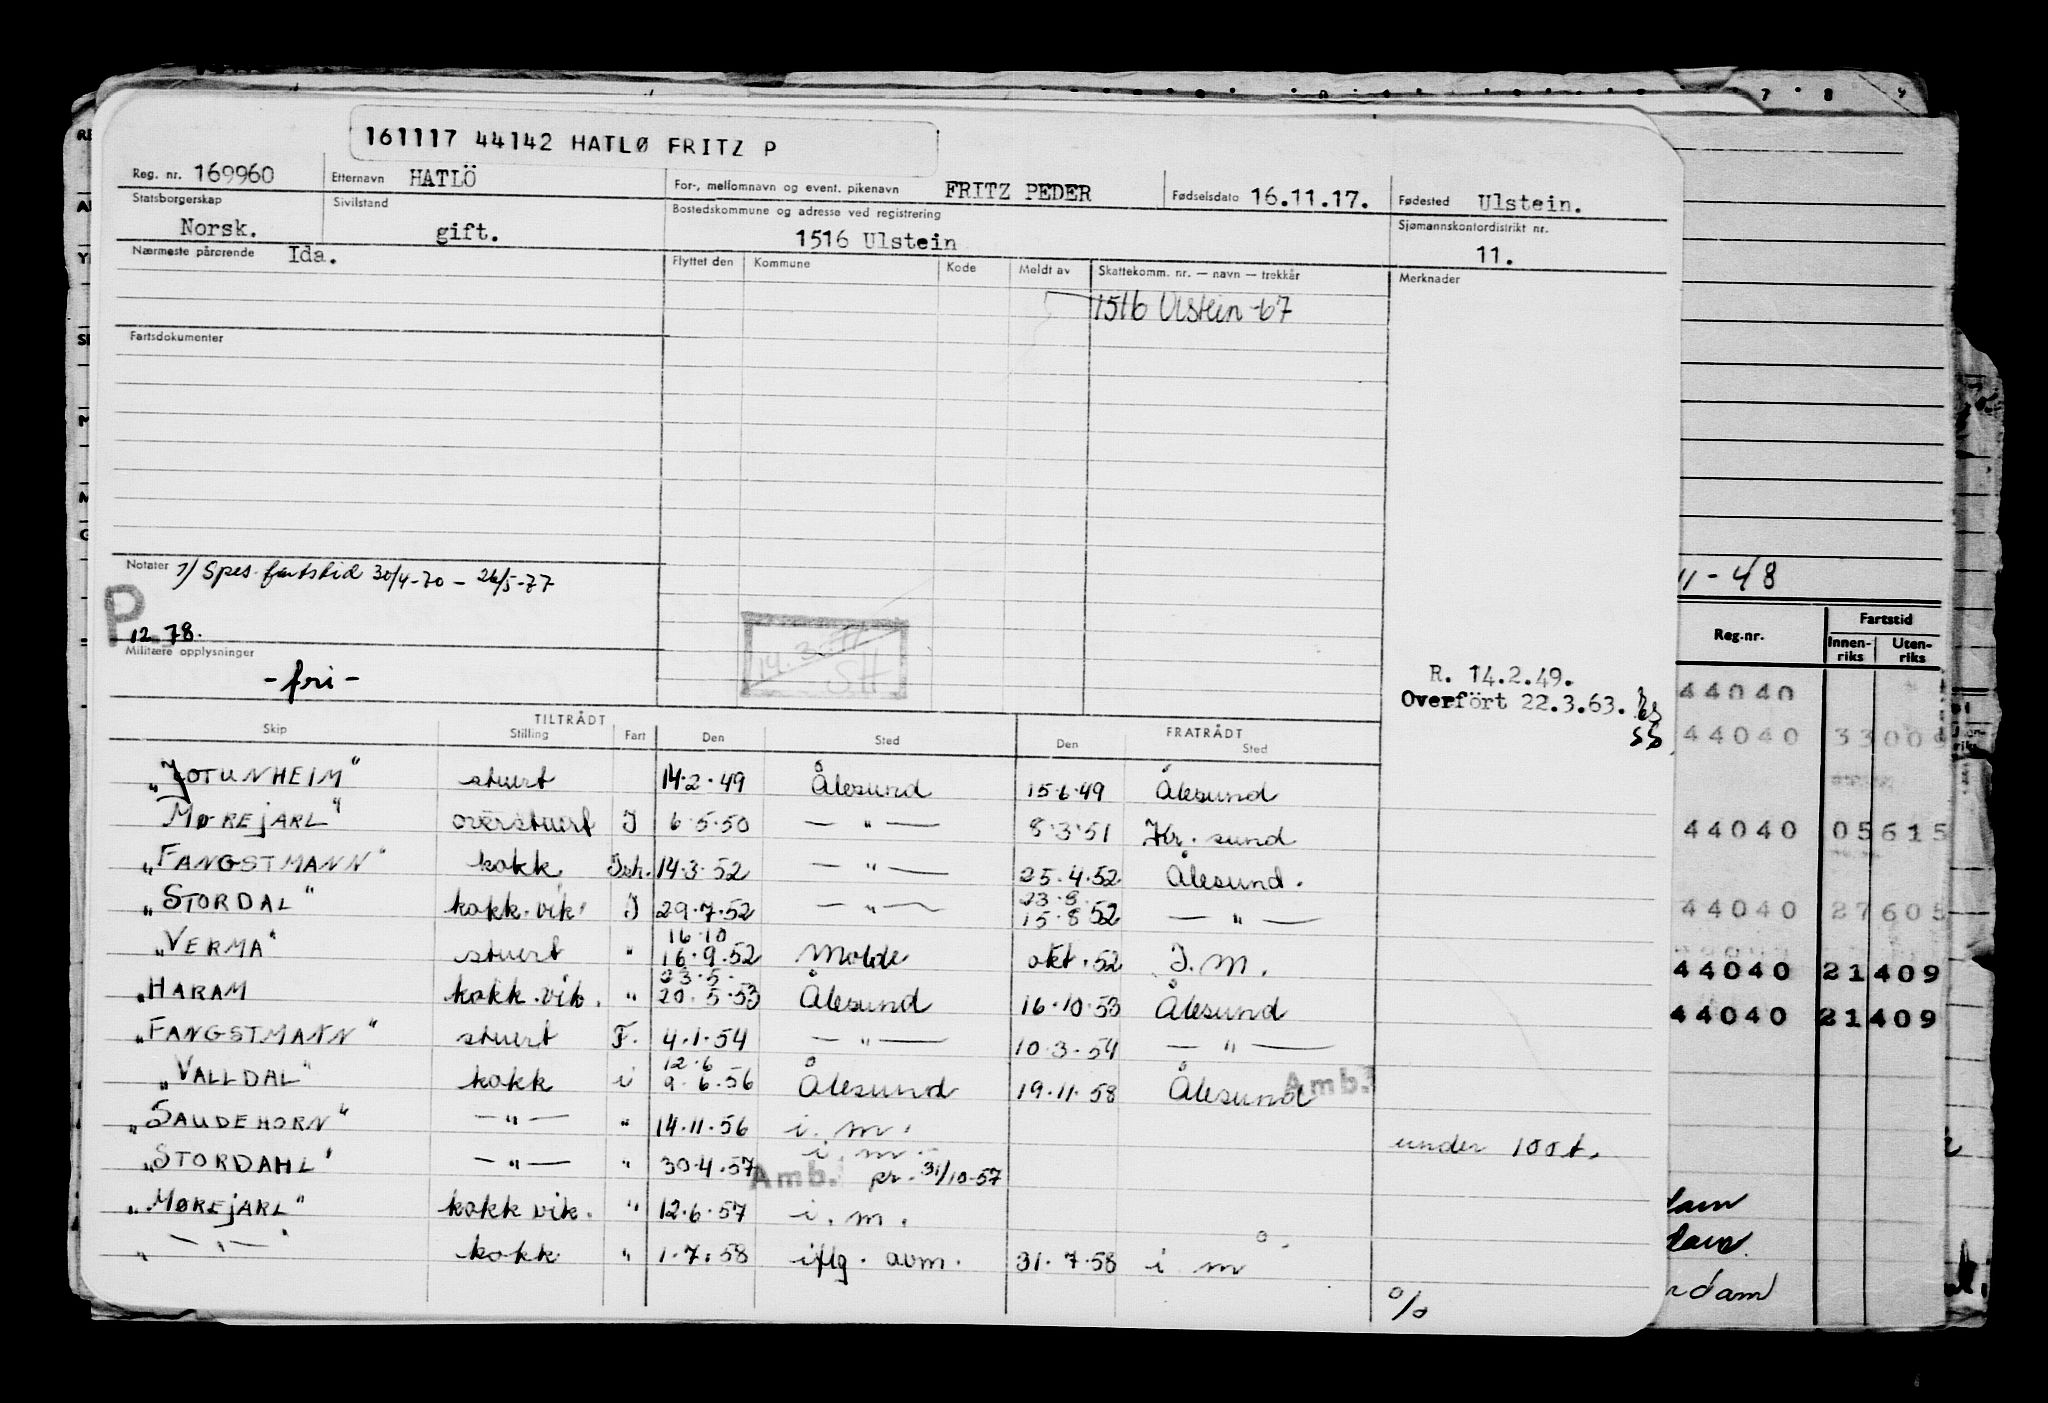 161117 44142 HATLØ FRITZ P
Reg. nr. 169960 Etternavn HATLÖ For-, mellomnavn og event. pikenavn FRITZ PEDER Fødselsdato 16.11.17. Fødested Ulstein.
Statsborgerskap Norsk. Sivilstand gift. Bostedskommune og adresse ved registrering 1516 Ulstein Sjømannskontordistrikt nr. 11.
Nærmeste pårørende Ida. Flyttet den Kommune Kode Meldt av Skattekomm. nr. — navn — trekkår Merknader
1516 Ulstein -67
Fartsdokumenter
Notater 1) Spes. fartstid 30/4-70 - 26/5-77
P
12.78.
14.3.77 SH
Militære opplysninger
-fri-
R. 14.2.49.
Overfört 22.3.63.
TILTRÅDT FRATRÅDT
Skip Stilling Fart Den Sted Den Sted
„JOTUNHEIM" stuert 14.2.49 Ålesund 15.6.49 Ålesund
MØREJARL" överstuert I 6.5.50 — " — 8.3.51 Kr. sund
„FANGSTMANN" kokk Ish. 14.3.52 — " — 25.4.52 Ålesund.
23.8.
„STORDAL" kokk.vik. I 29.7.52 — " — 15.8.52 — " —
16.10
„VERMA" stuert " 16.9.52 Molde okt.52 I.M.
23.5.
„HARAM kokk.vik. " 20.5.53 Ålesund 16.10.53 Ålesund
„FANGSTMANN" stuert F. 4.1.54 — " — 10.3.54 — " —
12.6
„VALLDAL" kokk i 9.6.56 Ålesund 19.11.58 Ålesund Amb.
„SAUDEHORN" — " — " 14.11.56 i.m. under 100t.
i.m.
„STORDAHL" — " — " 30.4.57 Amb. pr. 31/10-57
„MØREJARL" kokk vik. " 12.6.57 i.m.
„ — " — " kokk " 1.7.58 iflg. avm. 31.7.58 i m
%
7 8
11-48
Reg.nr. Fartstid
Innenriks Utenriks
44040
44040 33004
44040 05615
44040 27605
44040 21409
44040 21409
dam